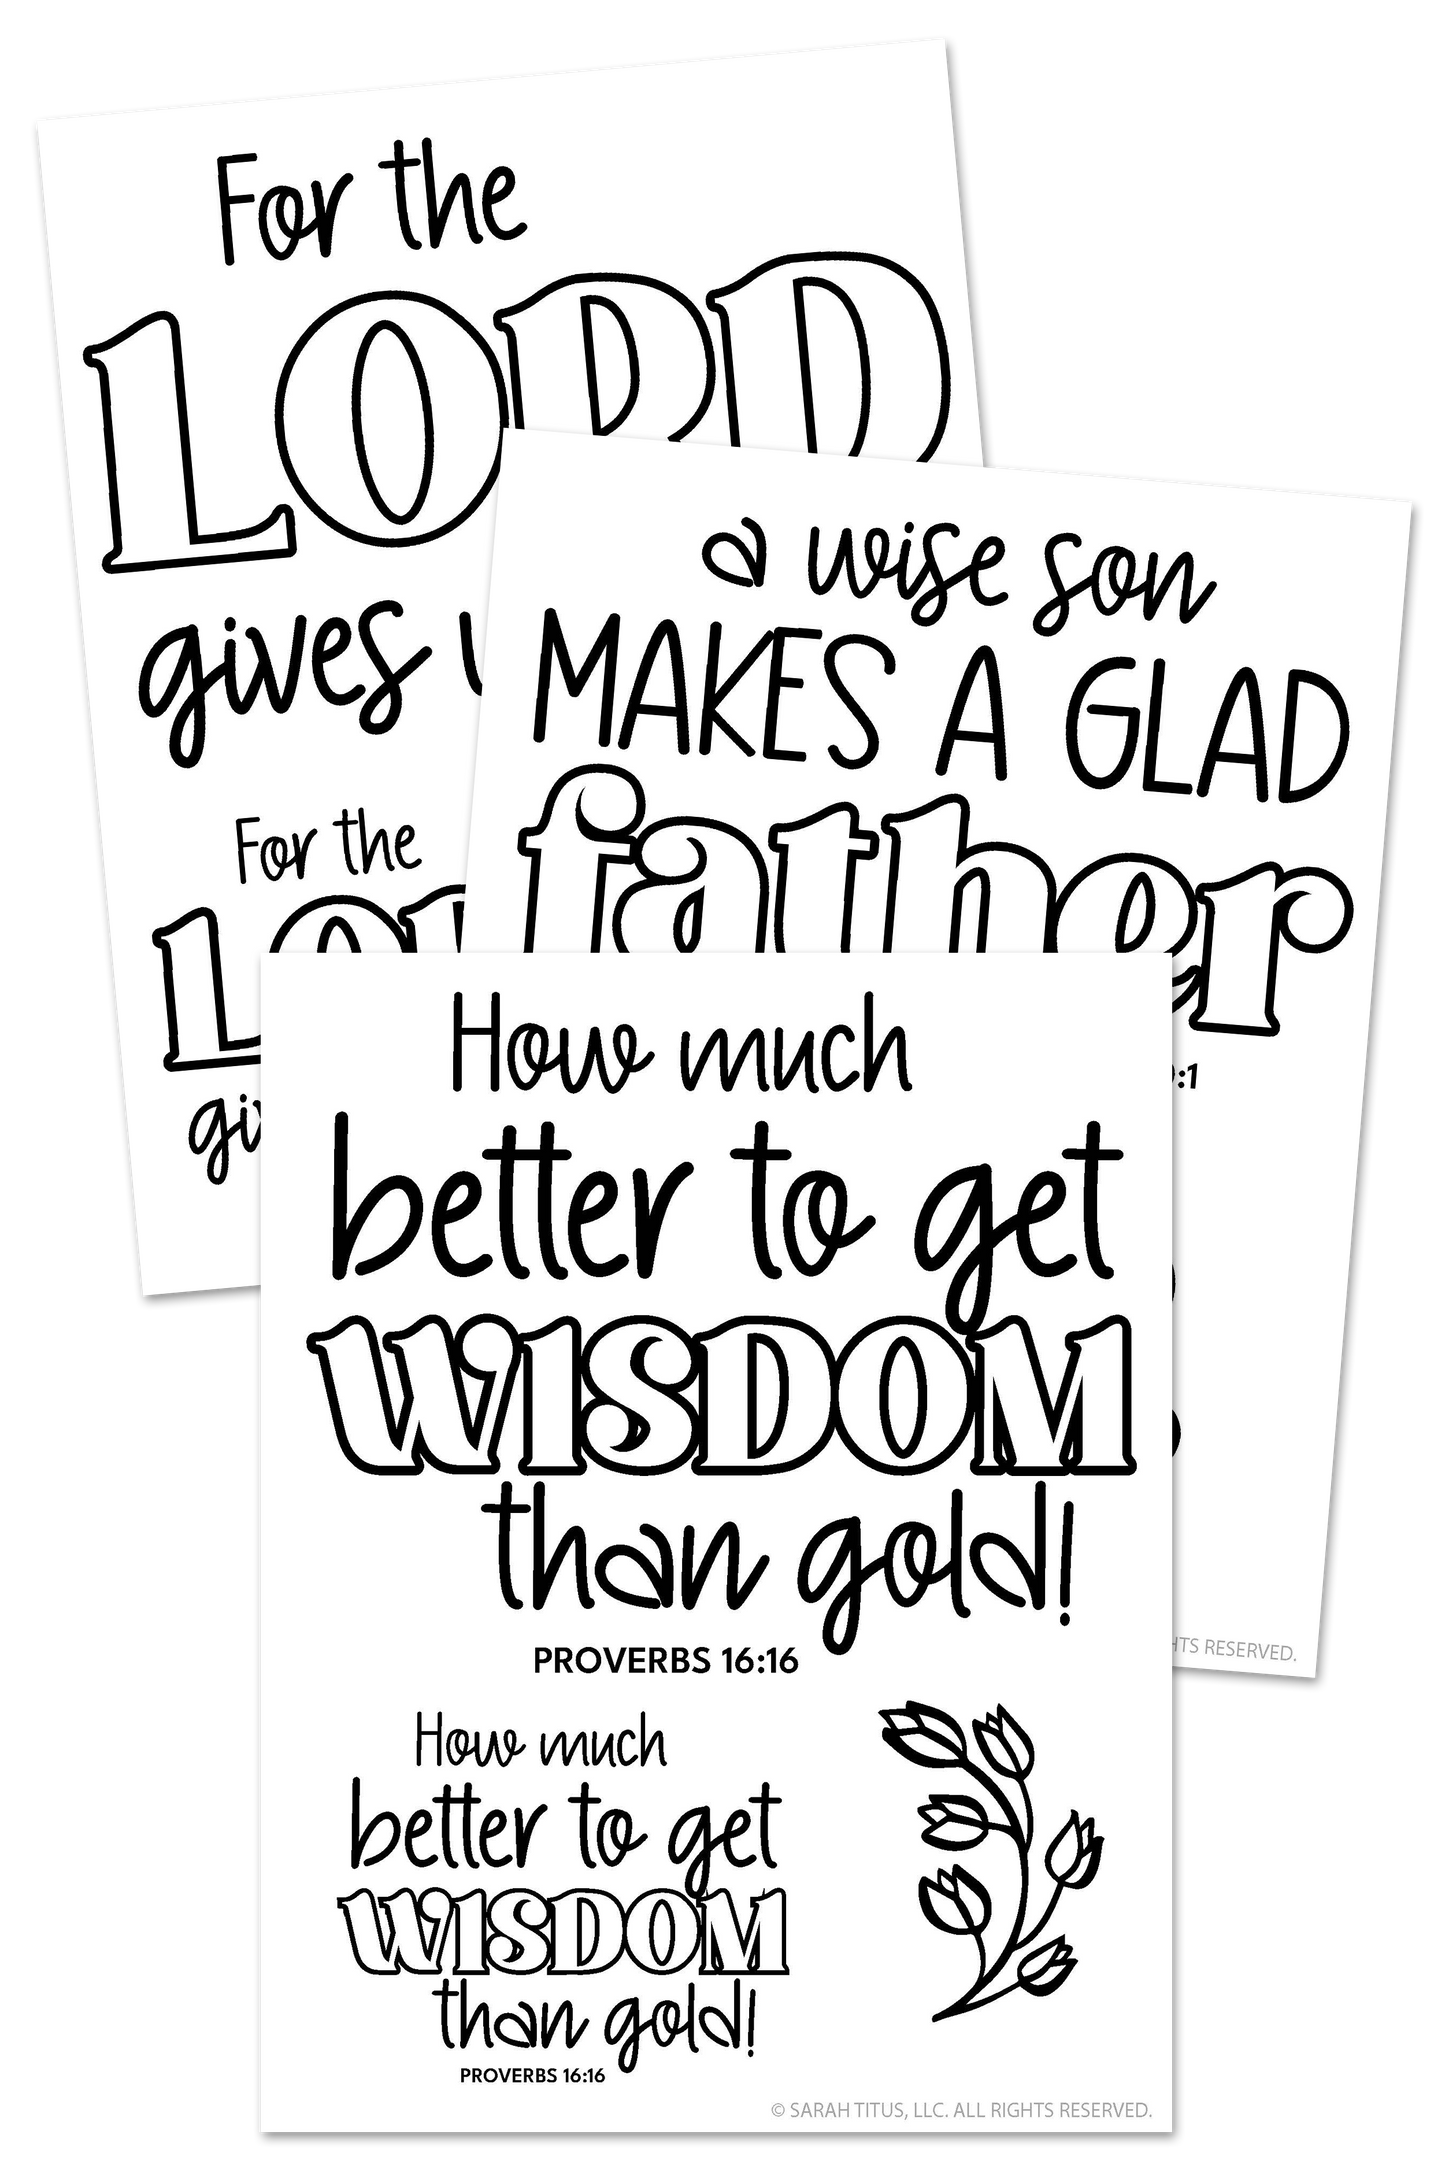 For the
LORD
gives
For the
a wise son
MAKES A GLAD
father
:1
RESERVED.
How much
better to get
WISDOM
than gold!
PROVERBS 16:16
How much
better to get
WISDOM
than gold!
PROVERBS 16:16
© SARAH TITUS, LLC. ALL RIGHTS RESERVED.